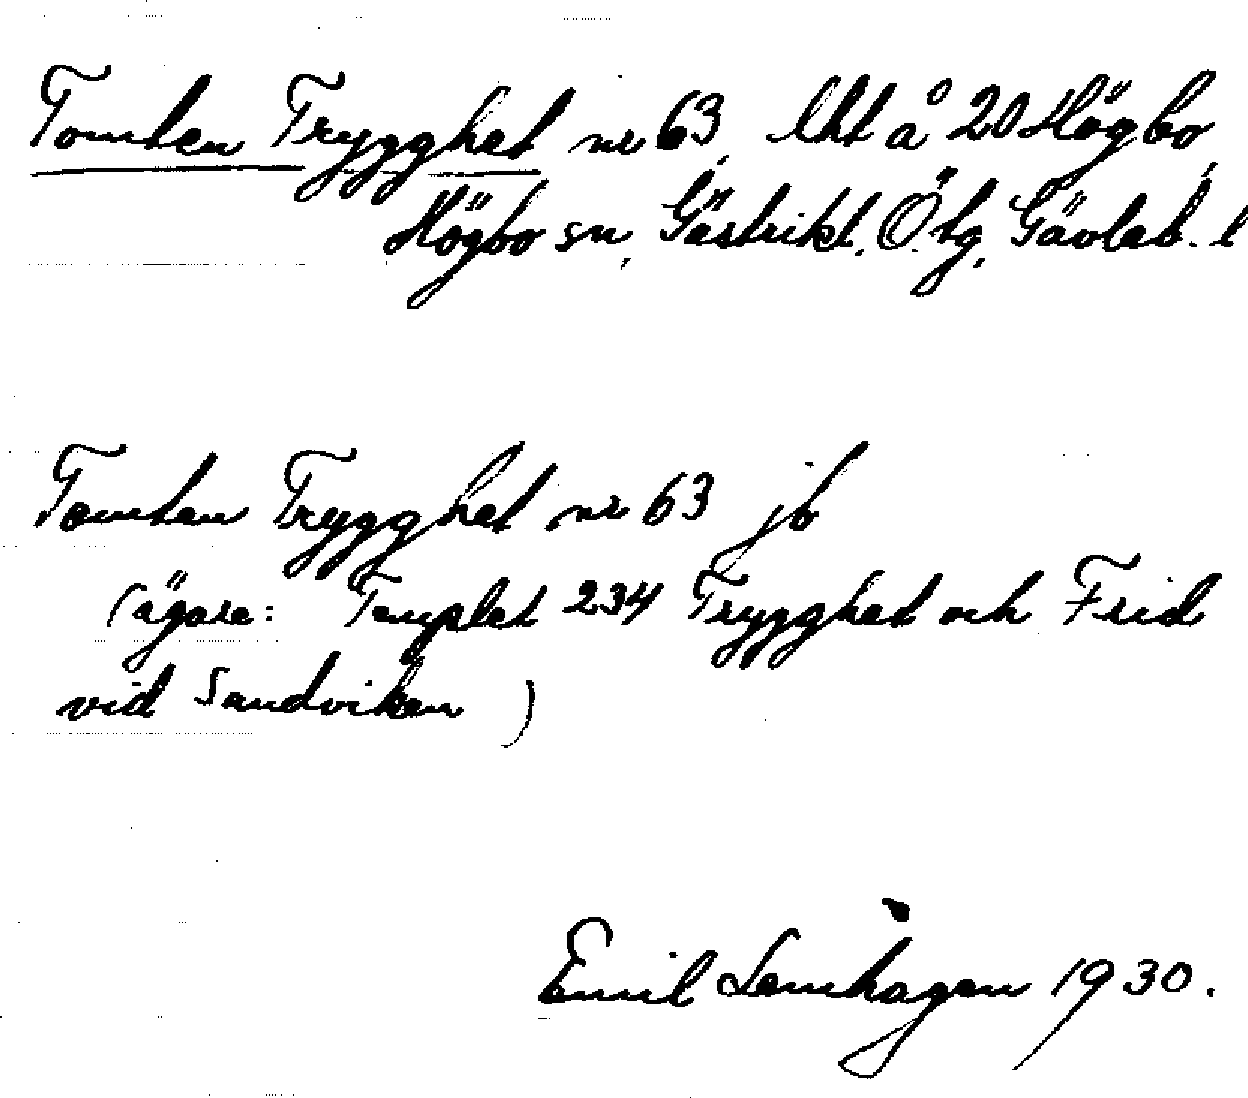 Tomten Trygghet nr 63, lht å 20 Högbo,
Högbo sn, Gästrikl. Ö. tg, Gävleb. l
Tomten Trygghet nr 63 jb
(ägare: Templet 234 Trygghet och Frid
vid Sandviken)
Emil Lemhagen 1930.